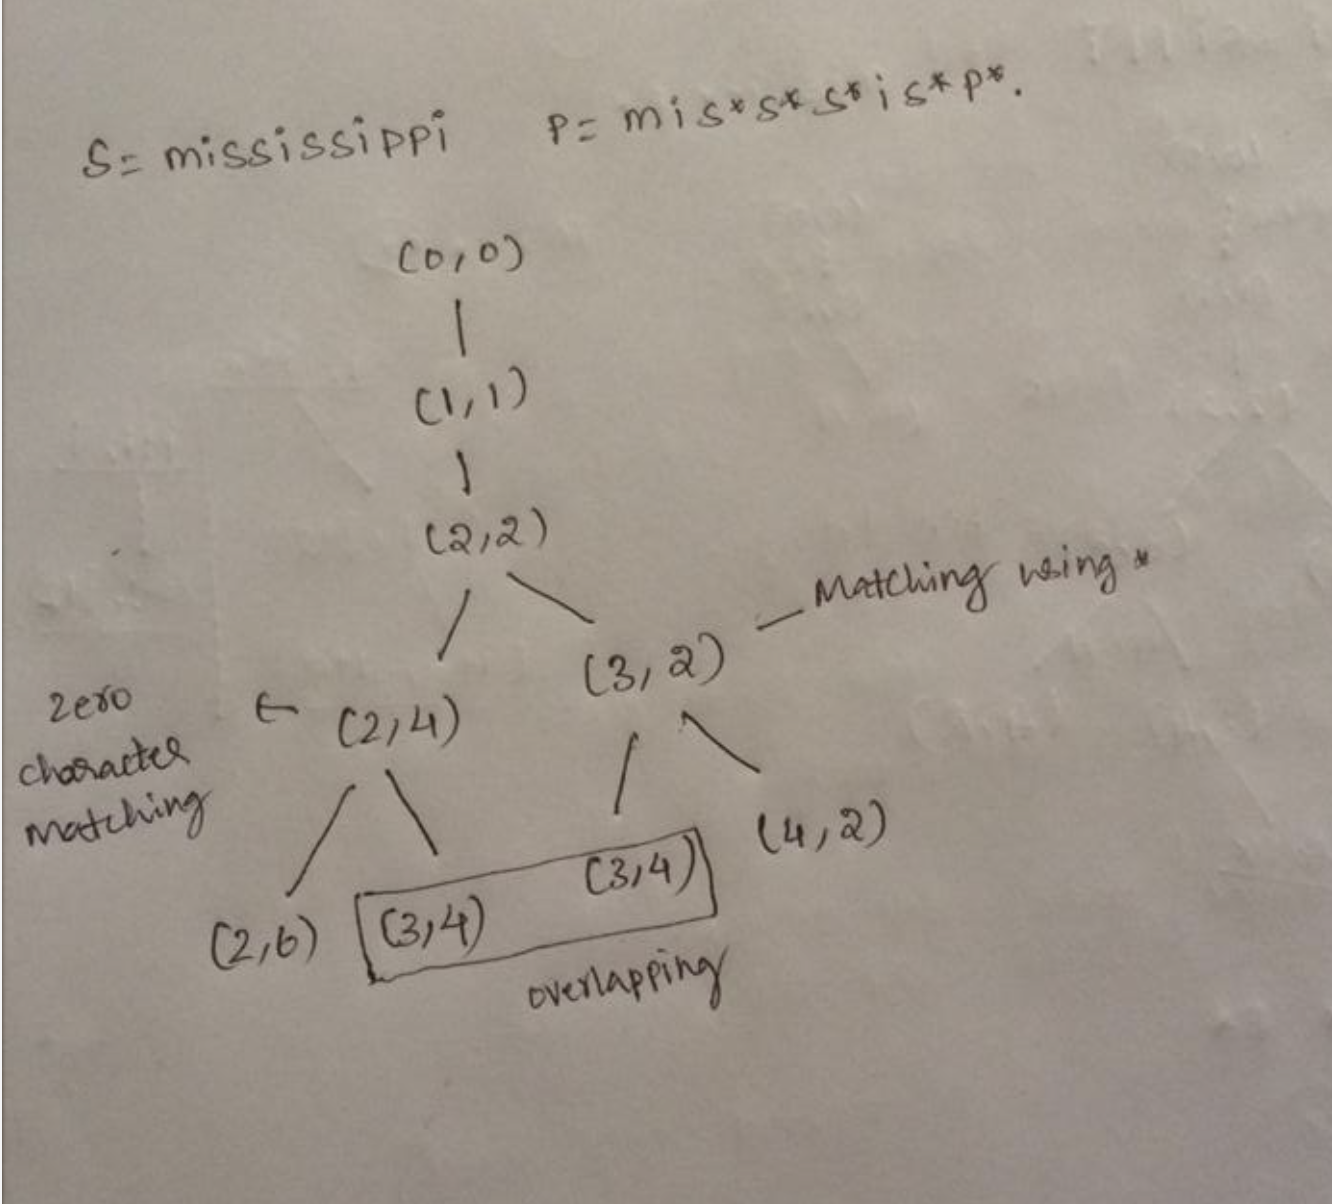 S= mississippi P= mis*s*s*is*p*.
(0,0)
(1,1)
(2,2)
Matching using *
(3,2)
zero
character
matching
(2,4)
(4,2)
(3,4)
(2,6) (3,4)
overlapping